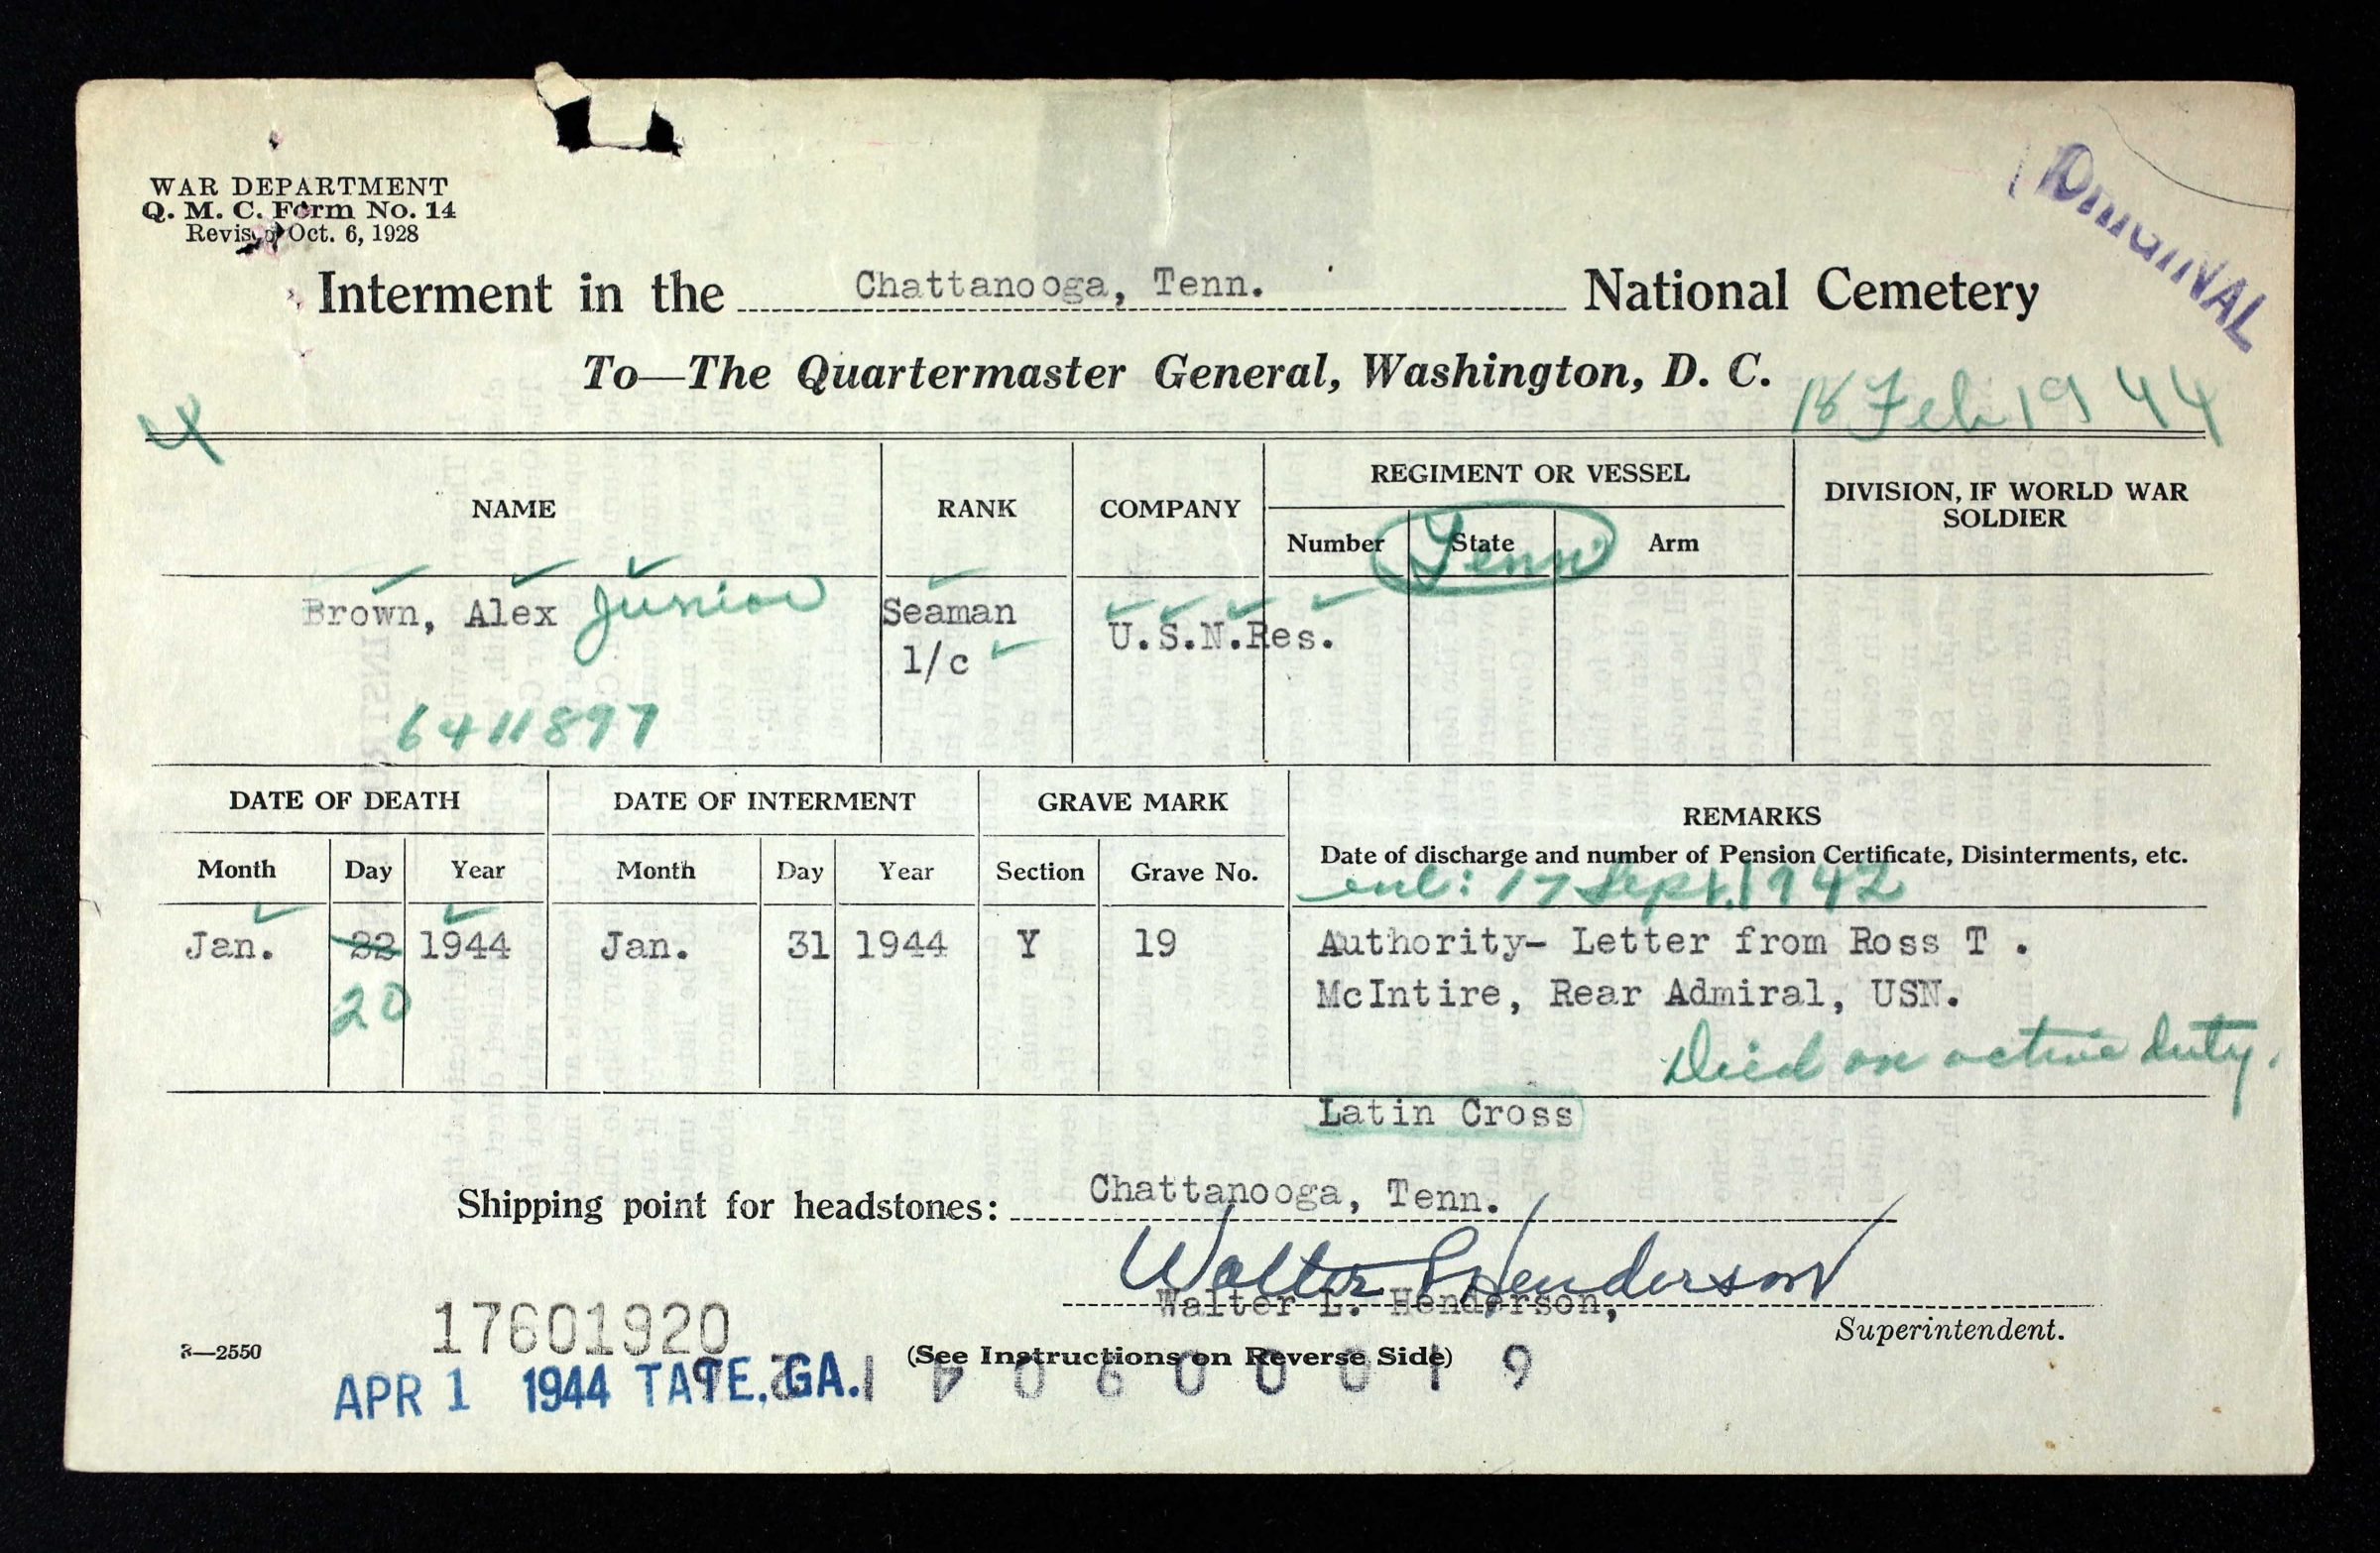 WAR DEPARTMENT
Q. M. C. Form No. 14
Revised Oct. 6, 1928
ORIGINAL
Interment in the Chattanooga, Tenn. National Cemetery
To—The Quartermaster General, Washington, D. C.
18 Feb 1944
4
NAME
RANK
COMPANY
REGIMENT OR VESSEL
DIVISION, IF WORLD WAR
SOLDIER
Number
State
Arm
Tenn
Brown, Alex Junior
Seaman
1/c
U.S.N.Res.
6411897
DATE OF DEATH
DATE OF INTERMENT
GRAVE MARK
REMARKS
Month
Day
Year
Month
Day
Year
Section
Grave No.
Date of discharge and number of Pension Certificate, Disinterments, etc.
enl: 17 Sept. 1942
Jan. 22 1944 Jan. 31 1944 Y 19
20
Authority- Letter from Ross T .
McIntire, Rear Admiral, USN.
Died on active duty.
Latin Cross
Shipping point for headstones: Chattanooga, Tenn.
Walter L Henderson
Walter L. Henderson,
Superintendent.
17601920
3—2550
(See Instructions on Reverse Side)
APR 1 1944 TATE, GA.